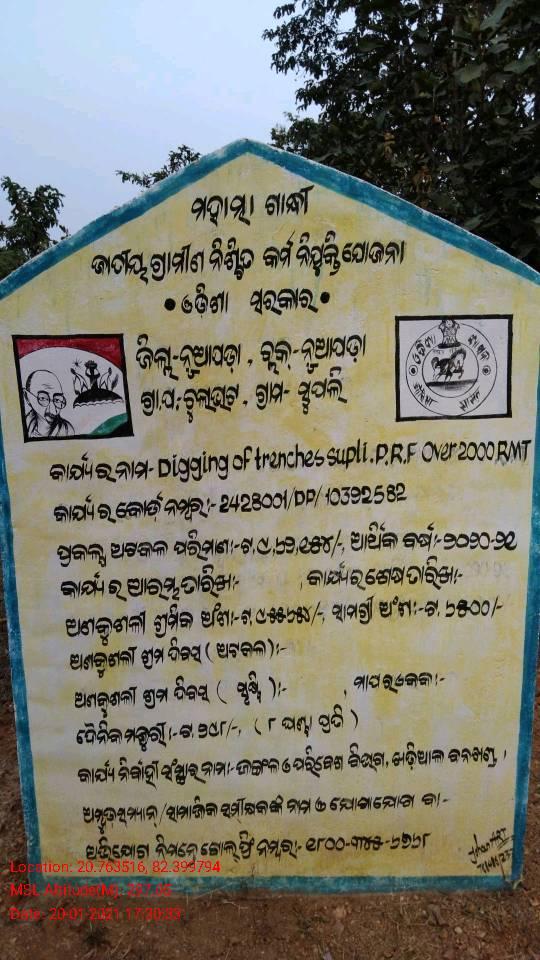 ମହାତ୍ମା ଗାନ୍ଧୀ
ଜାତୀୟ ଗ୍ରାମୀଣ ନିଶ୍ଚିତ କର୍ମ ନିଯୁକ୍ତି ଯୋଜନା
• ଓଡ଼ିଶା ସରକାର •
ଜିଲ୍ଲା-ନୂଆପଡ଼ା, ବ୍ଲକ୍-ନୂଆପଡ଼ା
ଗ୍ରା.ପଂ:ଚୁଲାଭାଟ, ଗ୍ରାମ- ସୁପଲି
କାର୍ଯ୍ୟର ନାମ- Digging of trenches supli.P.R.F Over 2000 RMT
କାର୍ଯ୍ୟର କୋର୍ଡ଼ ନମ୍ବର:- 2428001/DP/10392582
ପ୍ରକଳ୍ପ ଅଟକଳ ପରିମାଣ:-ଟ. ଆର୍ଥିକ ବର୍ଷ:-୨୦୨୦-୨୧
କାର୍ଯ୍ୟର ଆରମ୍ଭ ତାରିଖ:- , କାର୍ଯ୍ୟର ଶେଷ ତାରିଖ:-
ଅଣକୁଶଳୀ ଶ୍ରମିକ ଅଂଶ:-ଟ. ସାମଗ୍ରୀ ଅଂଶ:-ଟ. ୬୫୦୦/-
ଅଣକୁଶଳୀ ଶ୍ରମ ଦିବସ (ଅଟକଳ):-
ଅଣକୁଶଳୀ ଶ୍ରମ ଦିବସ ( ସୃଷ୍ଟି ):- , ମାପର ଏକକ:-
ଦୈନିକ ମଜୁରୀ:-ଟ. ୨୯୮/-, ( ୮ ଘଣ୍ଟା ପ୍ରତି )
କାର୍ଯ୍ୟ ନିର୍ବାହୀ ସଂସ୍ଥାର ନାମ:-ଜଙ୍ଗଲ ଓ ପରିବେଶ ବିଭାଗ, ଖଡ଼ିଆଳ ବନଖଣ୍ଡ।
ସାମାଜିକ ସମୀକ୍ଷକଙ୍କ ନାମ ଓ ଯୋଗାଯୋଗ ନଂ-
ଅଭିଯୋଗ ନିମନ୍ତେ ଟୋଲ୍ ଫ୍ରି ନମ୍ବର:- ୧୮୦୦-୩୪୫-୬୭୬୮
Location: 20.763516, 82.399794
MSL Altitude(M): 257.65
Date: 20-01-2021 17:30:33